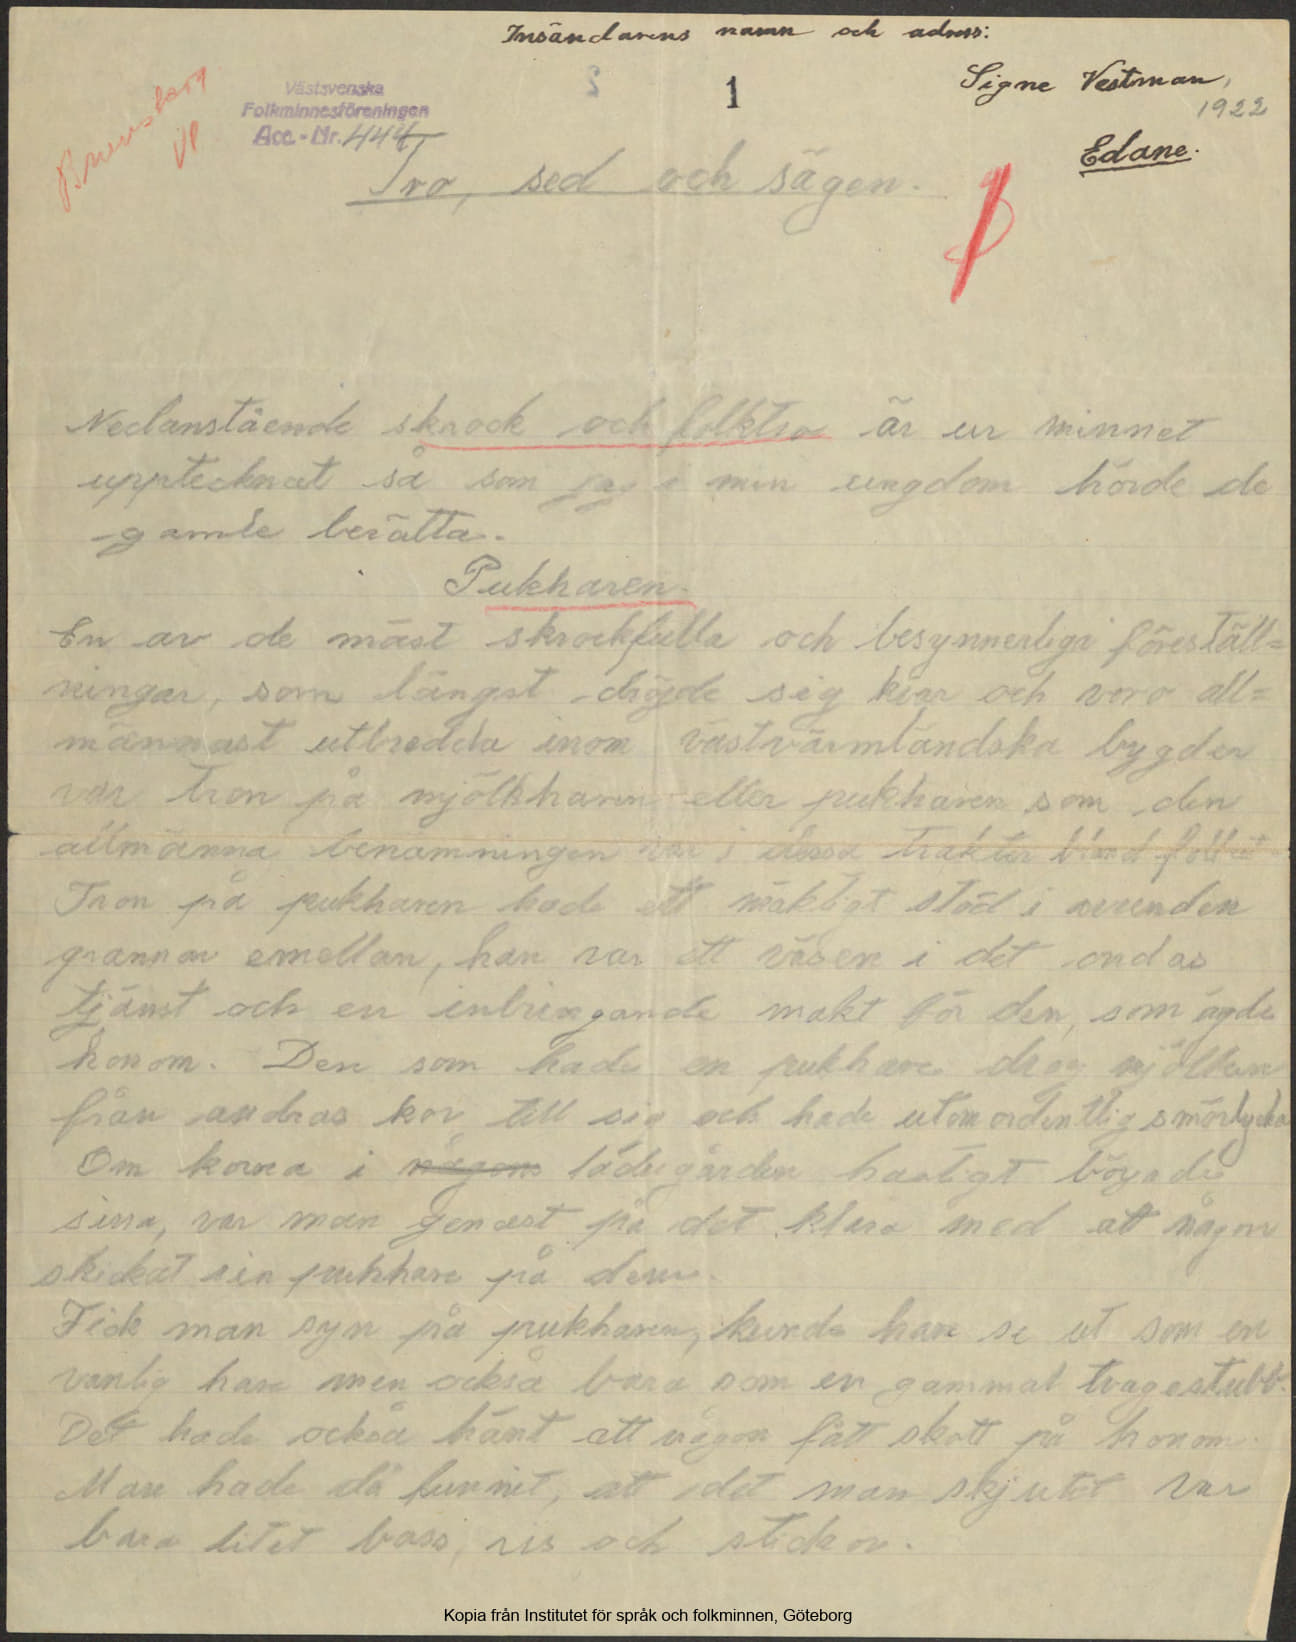 Insändarens namn och adress:
Signe Vestman,
1922
Edane.
Brunskog
Västsvenska
Folkminnesföreningen
Acc.-Nr. 444
1
Tro, sed och sägen.
Nedanstående skrock och folktro är ur minnet
upptecknat så som jag i min ungdom hörde de
gamle berätta.
Pukharen.
En av de mäst skrockfulla och besynnerliga föreställ=
ningar, som längst dröjde sig kvar och voro all=
männast utbredda inom västvärmländska bygder
var tron på mjölkharen eller pukharen som den
allmänna benämningen var i dessa trakter bland folket
Tron på pukharen hade ett mäktigt stöd i avunden
grannar emellan, han var ett väsen i det ondas
tjänst och en inbringande makt för den, som ägde
honom. Den som hade en pukhare drog mjölken
från andras kor till sig och hade utomordentlig smörlycka
Om korna i någons ladugården hastigt började
sina, var man genast på det klara med att någon
skickat sin pukhare på dem.
Fick man syn på pukharen, kunde han se ut som en
vanlig hare men också bara som en gammal tragestubb.
Det hade också hänt att någon fått skott på honom.
Man hade då funnit, att det man skjutit var
bara litet boss, ris och stickor.
Kopia från Institutet för språk och folkminnen, Göteborg